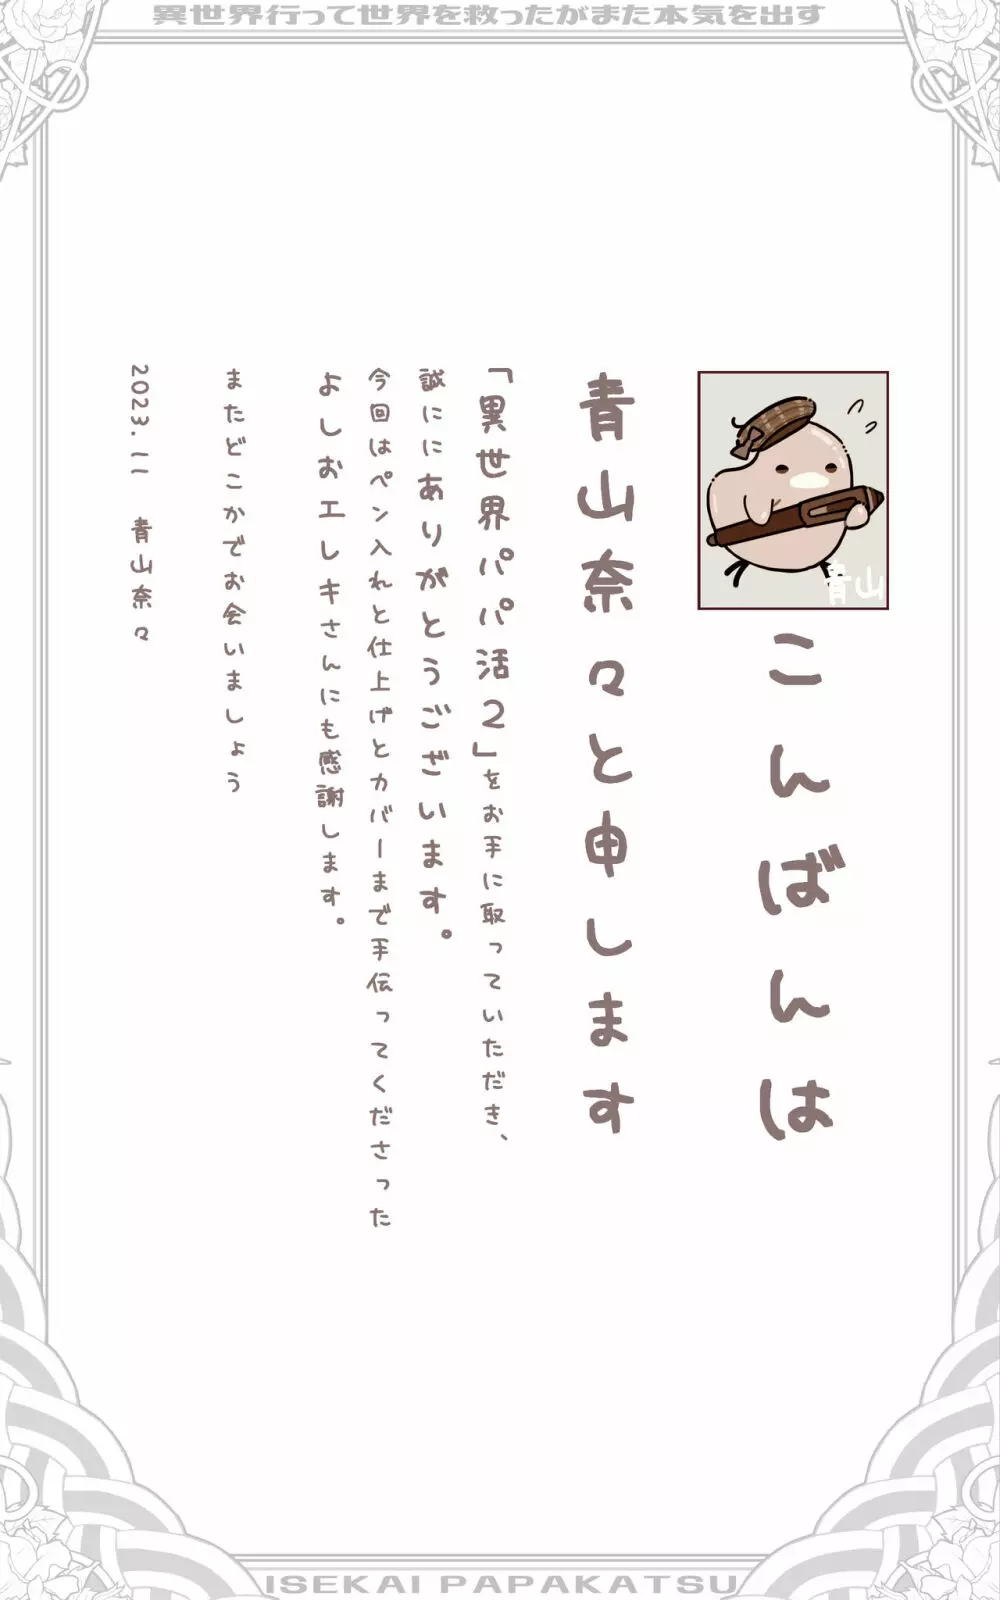 異世界行って世界を救ったがまた本気を出す
青山
こんばんは
青山奈々と申します
「異世界パパ活2」をお手に取っていただき、
誠ににありがとうございます。
今回はペン入れと仕上げとカバーまで手伝ってくださった
よしおエレキさんにも感謝します。
またどこかでお会いましょう
2023.11 青山奈々
ISEKAI PAPAKATSU